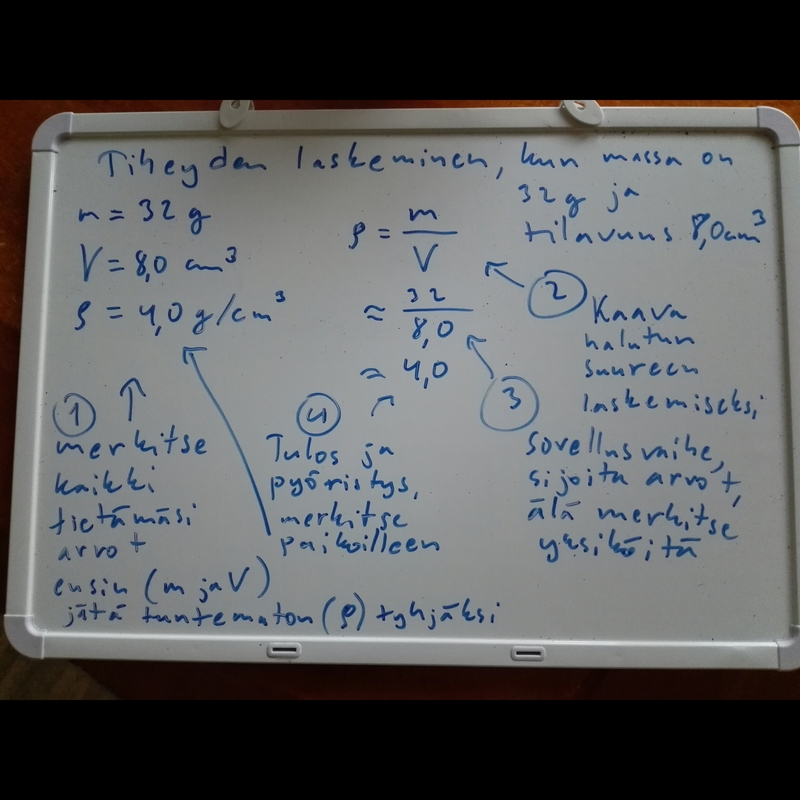 Tiheyden laskeminen, kun massa on
32 g ja
tilavuus 8,0 cm³
m = 32 g
V = 8,0 cm³
ρ = 4,0 g/cm³
ρ = m/V
≈ 32/8,0
≈ 4,0
1
merkitse
kaikki
tietämäsi
arvot
ensin (m ja V)
jätä tuntematon (ρ) tyhjäksi
2
Kaava
halutun
suureen
laskemiseksi
3
Sovellusvaihe,
sijoita arvot,
älä merkitse
yksiköitä
4
Tulos ja
pyöristys,
merkitse
paikoilleen